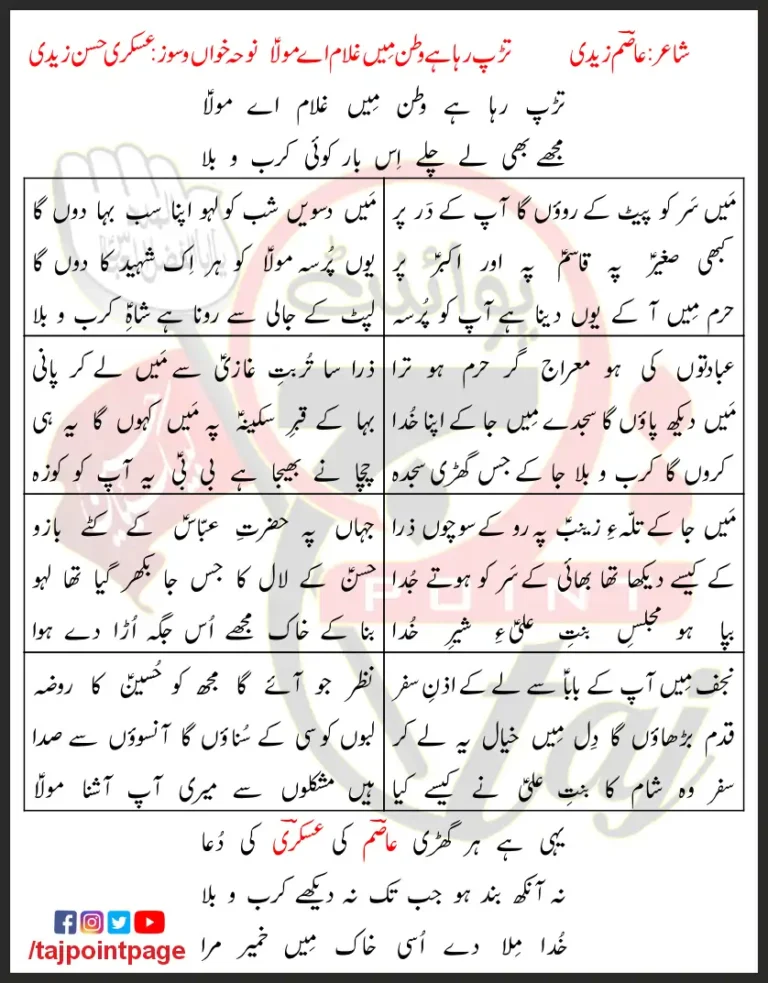 شاعر: عاصمؔ زیدی تڑپ رہا ہے وطن مِیں غلام اے مولاؑ نوحہ خواں و سوز: عسکری حسن زیدی
تڑپ رہا ہے وطن مِیں غلام اے مولاؑ
مجھے بھی لے چلے اِس بار کوئی کرب و بلا
مَیں سَر کو پیٹ کے روؤں گا آپ کے دَر پر
کبھی صغیرؑ پہ قاسمؑ پہ اور اکبرؑ پر
حرم مِیں آ کے یوں دینا ہے آپ کو پُرسہ
مَیں دسویں شب کو لہو اپنا سب بہا دوں گا
یوں پُرسہ مولاؑ کو ہر اِک شہید کا دوں گا
لپٹ کے جالی سے رونا ہے شاہِؑ کرب و بلا
عبادتوں کی ہو معراج گر حرم ہو ترا
مَیں دیکھ پاؤں گا سجدے مِیں جا کے اپنا خُدا
کروں گا کرب و بلا جا کے جس گھڑی سجدہ
ذرا سا تُربتِ غازیؑ سے مَیں لے کر پانی
بہا کے قبرِ سکینہؑ پہ مَیں کہوں گا یہ ہی
چچا نے بھیجا ہے بی بیؑ یہ آپ کو کوزہ
مَیں جا کے تلّہءِ زینبؑ پہ رو کے سوچوں ذرا
کے کیسے دیکھا تھا بھائی کے سَر کو ہوتے جُدا
بپا ہو مجلسِ بنتِ علیؑءِ شیرِ خُدا
جہاں پہ حضرتِ عبّاسؑ کے کٹے بازو
حسنؑ کے لال کا جس جا بکھر گیا تھا لہو
بنا کے خاک مجھے اُس جگہ اُڑا دے ہوا
نجف مِیں آپ کے باباؑ سے لے کے اذنِ سفر
قدم بڑھاؤں گا دِل مِیں خیال یہ لے کر
سفر وہ شام کا بنتِ علیؑ نے کیسے کیا
نظر جو آئے گا مجھ کو حُسینؑ کا روضہ
لبوں کو سی کے سُناؤں گا آنسوؤں سے صدا
ہیں مشکلوں سے میری آپ آشنا مولاؑ
یہی ہے ہر گھڑی عاصمؔ کی عسکریؔ کی دُعا
نہ آنکھ بند ہو جب تک نہ دیکھے کرب و بلا
خُدا مِلا دے اُسی خاک مِیں خمیر مرا
/tajpointpage
پوائنٹ
POINT
Taj